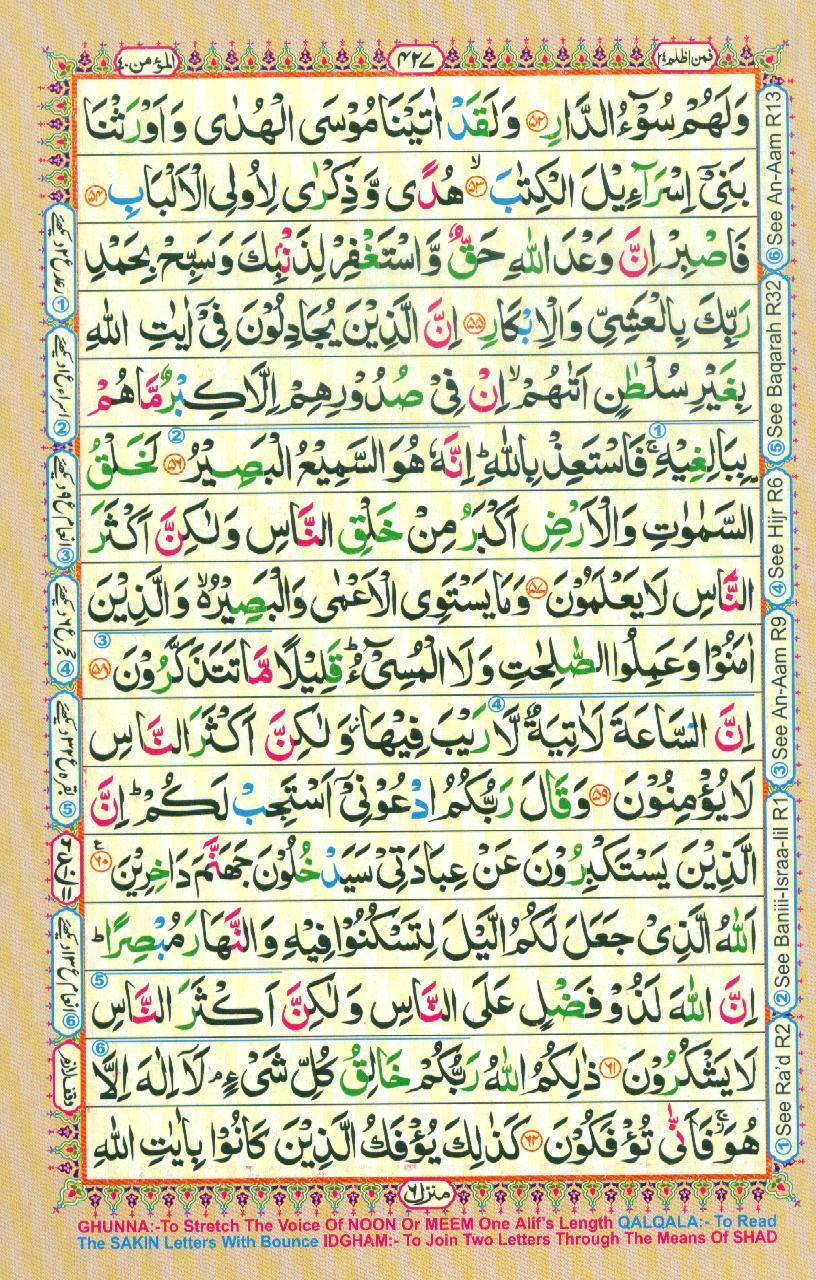 المؤمن ٤٠
٤٢٧
فمن اظلم ٢٤
وَلَهُمْ سُوْٓءُ الدَّارِ ﴿۵۲﴾ وَلَقَدْ اٰتَيْنَا مُوْسَى الْهُدٰى وَ اَوْرَثْنَا
بَنِىْٓ اِسْرَآءِيْلَ الْكِتٰبَ ۙ﴿۵۳﴾ هُدًى وَّ ذِكْرٰى لِاُولِى الْاَلْبَابِ ﴿۵۴﴾
فَاصْبِرْ اِنَّ وَعْدَ اللّٰهِ حَقٌّ وَّ اسْتَغْفِرْ لِذَنْۢبِكَ وَ سَبِّحْ بِحَمْدِ
رَبِّكَ بِالْعَشِىِّ وَالْاِبْكَارِ ﴿۵۵﴾ اِنَّ الَّذِيْنَ يُجَادِلُوْنَ فِىْٓ اٰيٰتِ اللّٰهِ
بِغَيْرِ سُلْطٰنٍ اَتٰىهُمْ ۙ اِنْ فِىْ صُدُوْرِهِمْ اِلَّا كِبْرٌ مَّا هُمْ
بِبَالِغِيْهِ ۚ فَاسْتَعِذْ بِاللّٰهِ ؕ اِنَّهٗ هُوَ السَّمِيْعُ الْبَصِيْرُ ﴿۵۶﴾ لَخَلْقُ
السَّمٰوٰتِ وَالْاَرْضِ اَكْبَرُ مِنْ خَلْقِ النَّاسِ وَلٰكِنَّ اَكْثَرَ
النَّاسِ لَا يَعْلَمُوْنَ ﴿۵۷﴾ وَمَا يَسْتَوِى الْاَعْمٰى وَالْبَصِيْرُ ۙ۬ وَالَّذِيْنَ
اٰمَنُوْا وَ عَمِلُوا الصّٰلِحٰتِ وَلَا الْمُسِىْٓءُ ؕ قَلِيْلًا مَّا تَتَذَكَّرُوْنَ ﴿۵۸﴾
اِنَّ السَّاعَةَ لَاٰتِيَةٌ لَّا رَيْبَ فِيْهَا وَلٰكِنَّ اَكْثَرَ النَّاسِ
لَا يُؤْمِنُوْنَ ﴿۵۹﴾ وَقَالَ رَبُّكُمُ ادْعُوْنِىْٓ اَسْتَجِبْ لَكُمْ ؕ اِنَّ
الَّذِيْنَ يَسْتَكْبِرُوْنَ عَنْ عِبَادَتِىْ سَيَدْخُلُوْنَ جَهَنَّمَ دَاخِرِيْنَ ﴿۶۰﴾
اَللّٰهُ الَّذِىْ جَعَلَ لَكُمُ الَّيْلَ لِتَسْكُنُوْا فِيْهِ وَالنَّهَارَ مُبْصِرًا ؕ
اِنَّ اللّٰهَ لَذُوْ فَضْلٍ عَلَى النَّاسِ وَلٰكِنَّ اَكْثَرَ النَّاسِ
لَا يَشْكُرُوْنَ ﴿۶۱﴾ ذٰلِكُمُ اللّٰهُ رَبُّكُمْ خَالِقُ كُلِّ شَىْءٍ ۘ لَاۤ اِلٰهَ اِلَّا
هُوَ ۚ فَاَنّٰى تُؤْفَكُوْنَ ﴿۶۲﴾ كَذٰلِكَ يُؤْفَكُ الَّذِيْنَ كَانُوْا بِاٰيٰتِ اللّٰهِ
منزل ٦
① See Ra'd R2
② See Baniii-Israa-Iil R1
③ See An-Aam R9
④ See Hijr R6
⑤ See Baqarah R32
⑥ See An-Aam R13
GHUNNA:-To Stretch The Voice Of NOON Or MEEM One Alif's Length QALQALA:- To Read
The SAKIN Letters With Bounce IDGHAM:- To Join Two Letters Through The Means Of SHAD